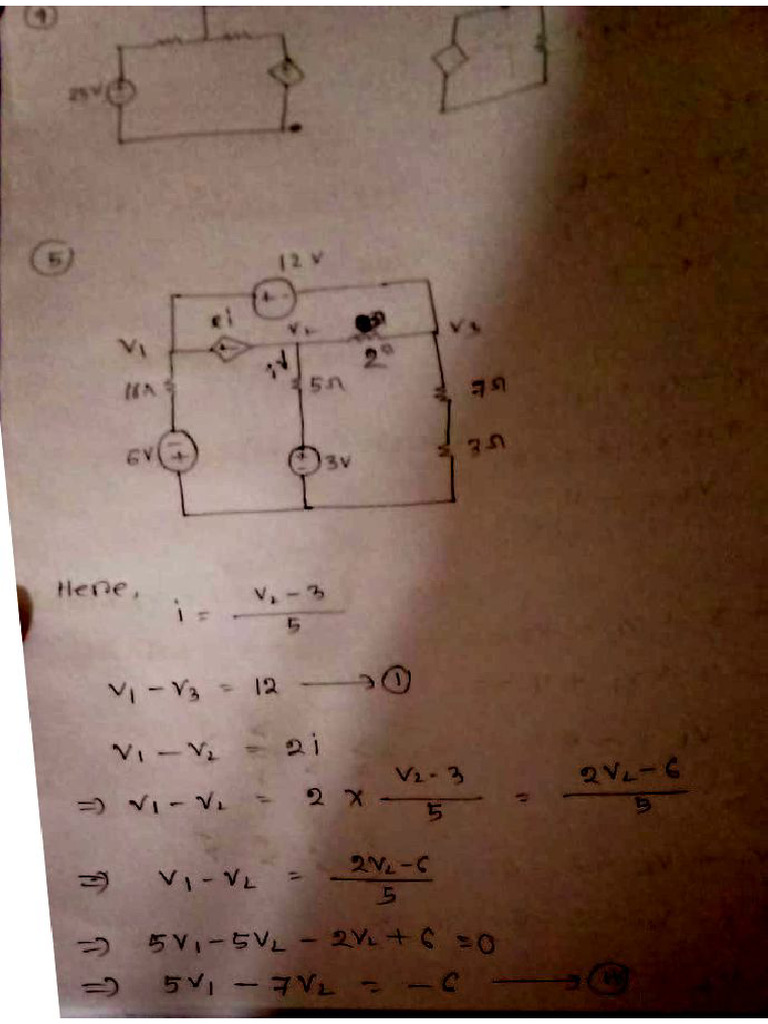 5
12 V
2i
V₂
V₃
V₁
i
2Ω
5Ω
7Ω
6V
3V
3Ω
Here, i = (V₂ - 3)/5
V₁ - V₃ = 12 → ①
V₁ - V₂ = 2i
⇒ V₁ - V₂ = 2 × (V₂ - 3)/5 = (2V₂ - 6)/5
⇒ V₁ - V₂ = (2V₂ - 6)/5
⇒ 5V₁ - 5V₂ - 2V₂ + 6 = 0
⇒ 5V₁ - 7V₂ = -6 →